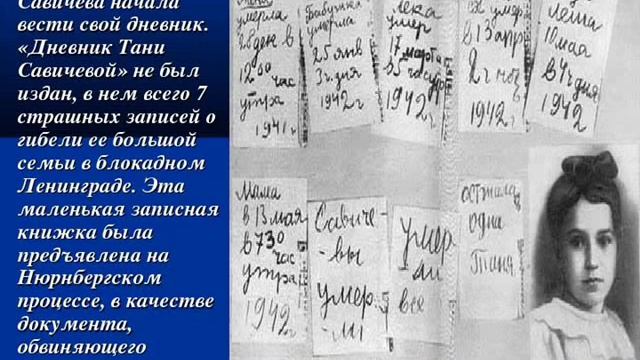 Савичева начала
вести свой дневник.
«Дневник Тани
Савичевой» не был
издан, в нем всего 7
страшных записей о
гибели ее большой
семьи в блокадном
Ленинграде. Эта
маленькая записная
книжка была
предъявлена на
Нюрнбергском
процессе, в качестве
документа,
обвиняющего
умерла
1200
час
утра
1941 г
Бабушка
умерла
25 янв
3 ч дня
1942 г
Лека
умер
17 марта
в 5 час утр
1942 г
умер
в 13 апр
2 ч ноч
1942 г
Леша
10 мая
в 4 ч дня
1942
Мама
в 13 мая
в 730
час
утра
1942 г
Савиче-
-вы
умер-
-ли
умер
-ли
все
осталась
одна
Таня